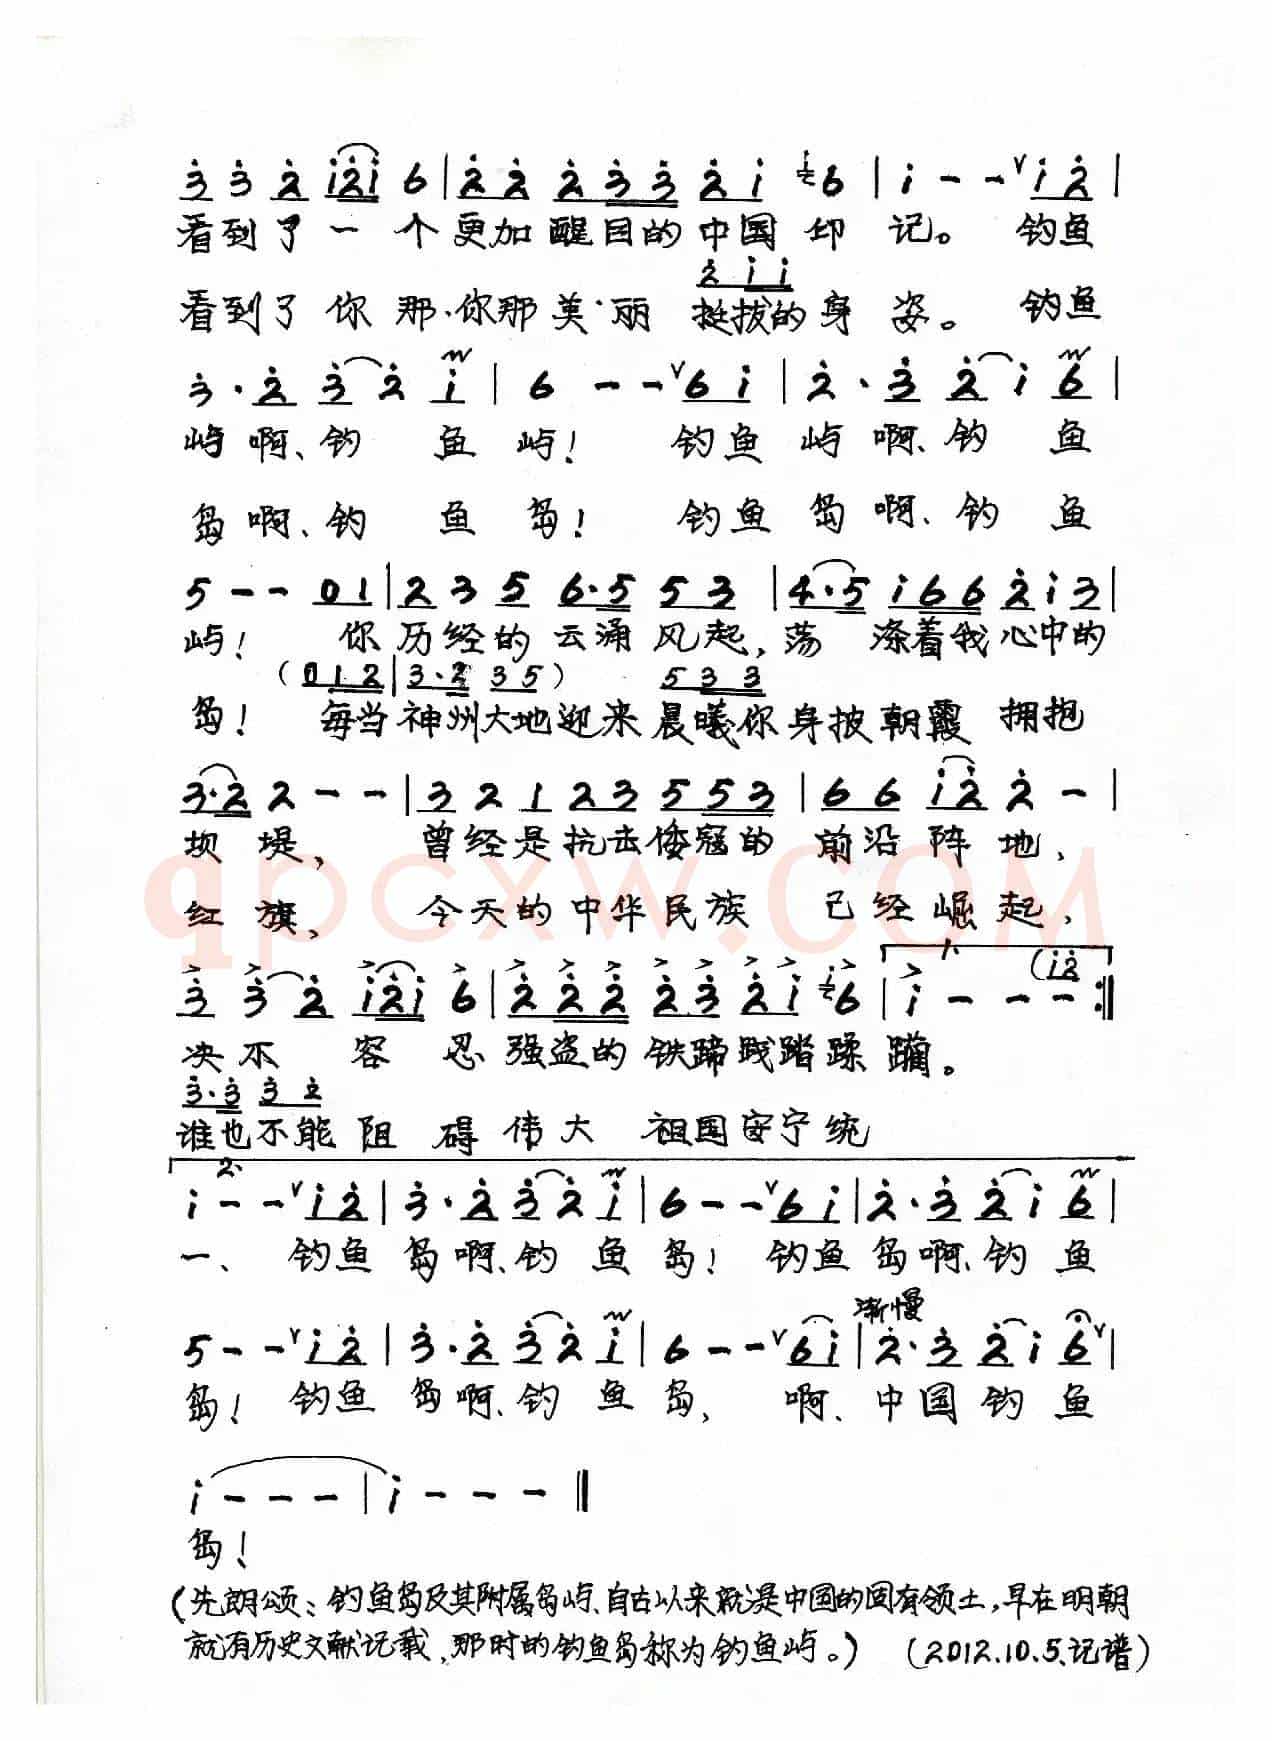 3 3 2 i2i 6 | 2 2 2 3 3 2 i 6 | i - - i 2 |
看到了一个更加醒目的中国印记。 钓鱼
2 i i
看到了你那、你那美丽挺拔的身姿。 钓鱼
3 · 2 3 2 i | 6 - - 6 i | 2 · 3 2 i 6 |
屿啊、钓鱼屿! 钓鱼屿啊、钓鱼
岛啊、钓鱼岛! 钓鱼岛啊、钓鱼
5 - - 0 1 | 2 3 5 6·5 5 3 | 4·5 i 6 6 2 i 3 |
屿! 你历经的云涌风起,荡涤着我心中的
(0 1 2 | 3·2 3 5) 5 3 3
岛! 每当神州大地迎来晨曦你身披朝霞拥抱
3·2 2 - - | 3 2 1 2 3 5 5 3 | 6 6 i 2 2 - |
坝堤, 曾经是抗击倭寇的前沿阵地、
红旗、 今天的中华民族已经崛起、
1. (i 2
3 3 2 i2i 6 | 2 2 2 2 3 2 i 6 | i - - - :||
决不容忍强盗的铁蹄践踏蹂躏。
3·3 3 2
谁也不能阻碍伟大祖国安宁统
2.
i - - i 2 | 3 · 2 3 2 i | 6 - - 6 i | 2 · 3 2 i 6 |
一、 钓鱼岛啊、钓鱼岛! 钓鱼岛啊、钓鱼
渐慢
5 - - i 2 | 3 · 2 3 2 i | 6 - - 6 i | 2 · 3 2 i 6 |
岛! 钓鱼岛啊、钓鱼岛、 啊、中国钓鱼
i - - - | i - - - ||
岛!
(先朗颂:钓鱼岛及其附属岛屿、自古以来就是中国的固有领土,早在明朝
就有历史文献记载,那时的钓鱼岛称为钓鱼屿。) (2012.10.5、记谱)
qpcxw.COM